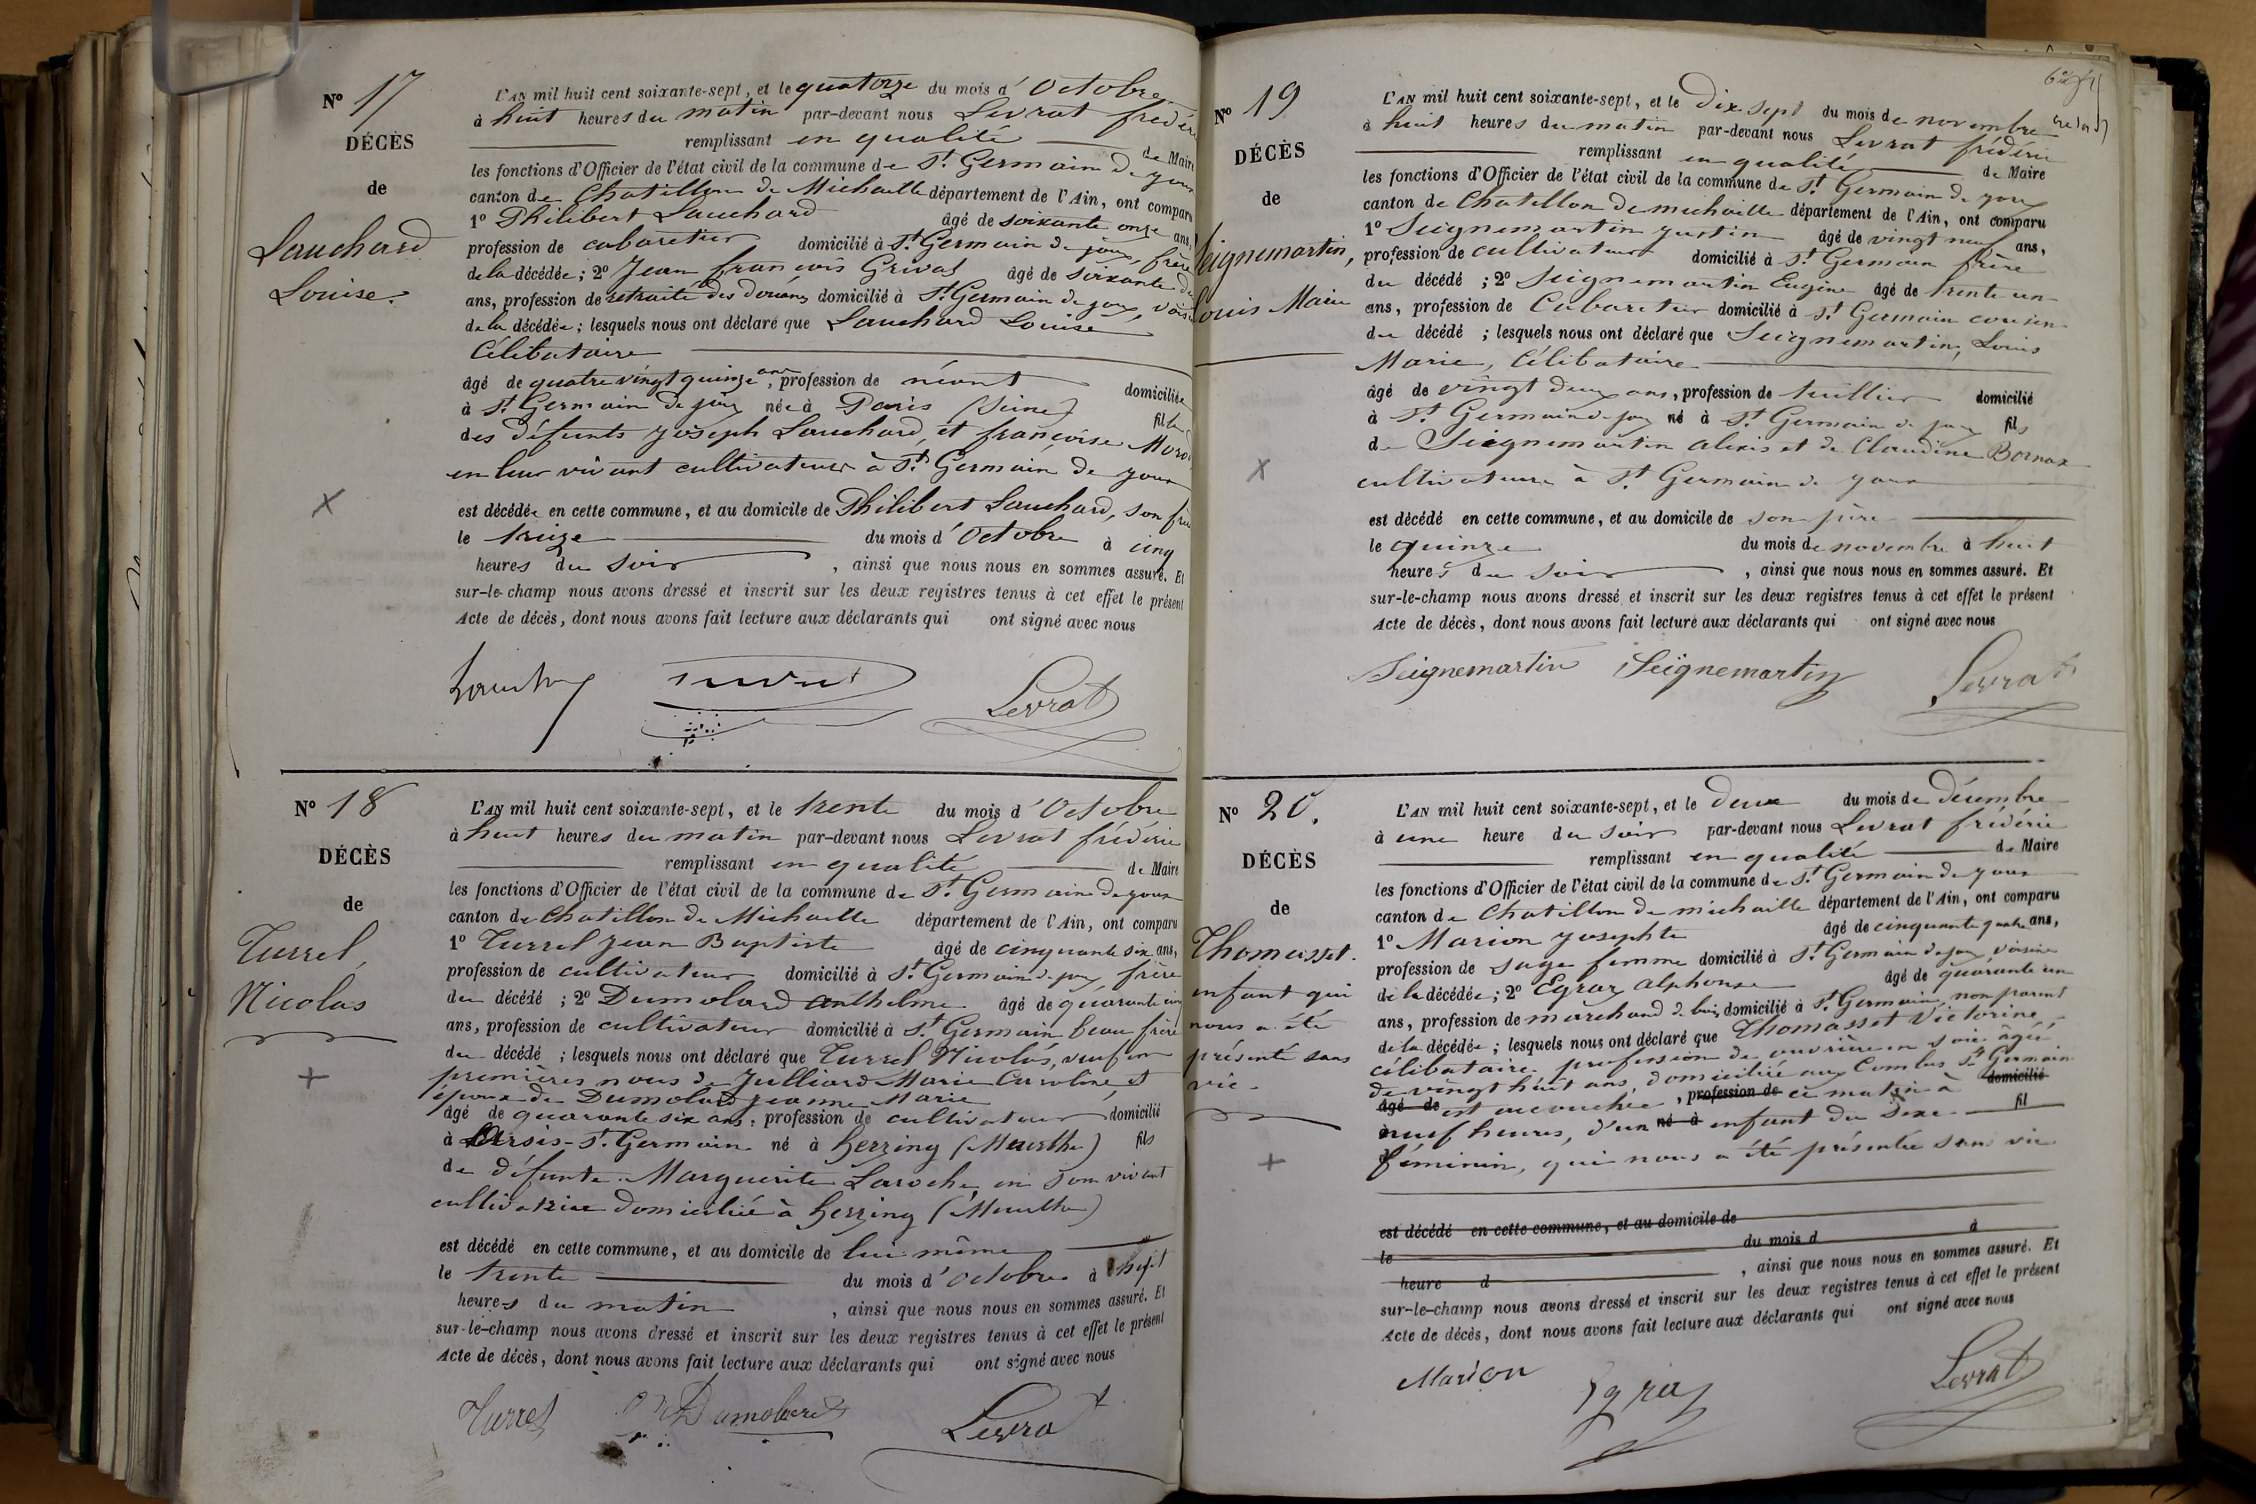 N° 17
DÉCÈS
de
Lauchard
Louise.
L'AN mil huit cent soixante-sept, et le quatorze du mois d'Octobre
à huit heures du matin par-devant nous Levrat frédéric
remplissant en qualité de Maire
les fonctions d'Officier de l'état civil de la commune de St Germain de joux
canton de Chatillon de Michaille département de l'Ain, ont comparu
1° Philibert Lauchard âgé de soixante onze ans,
profession de cabaretier domicilié à St Germain de joux, frère
de la décédée; 2° Jean françois Grivas âgé de soixante
ans, profession de retraité des douanes domicilié à St Germain de joux, voisin
de la décédée; lesquels nous ont déclaré que Lauchard Louise
Célibataire
âgé de quatre vingt quinze ans, profession de néant domiciliée
à St Germain de joux née à Paris (Seine) fille
des défunts joseph Lauchard, et françoise
en leur vivant cultivateurs à St Germain de joux
est décédée en cette commune, et au domicile de Philibert Lauchard, son frère
le treize du mois d'Octobre à cinq
heures du soir, ainsi que nous nous en sommes assuré. Et
sur-le-champ nous avons dressé et inscrit sur les deux registres tenus à cet effet le présent
Acte de décès, dont nous avons fait lecture aux déclarants qui ont signé avec nous
Levrat
N° 18
DÉCÈS
de
Turrel,
Nicolas
L'AN mil huit cent soixante-sept, et le trente du mois d'Octobre
à huit heures du matin par-devant nous Levrat frédéric
remplissant en qualité de Maire
les fonctions d'Officier de l'état civil de la commune de St Germain de joux
canton de Chatillon de Michaille département de l'Ain, ont comparu
1° Turrel jean Baptiste âgé de cinquante six ans,
profession de cultivateur domicilié à St Germain de joux frère
du décédé; 2° Dumolard anthelme âgé de quarante cinq
ans, profession de cultivateur domicilié à St Germain beau frère
du décédé; lesquels nous ont déclaré que Turrel Nicolas, veuf en
premières noces de Julliard Marie Caroline, et
époux de Dumolard jeanne Marie
âgé de quarante six ans, profession de cultivateur domicilié
à St Germain né à herzing (Meurthe) fils
de défunte Marguerite Laroche, en son vivant
cultivatrice domiciliée à herzing (Meurthe)
est décédé en cette commune, et au domicile de lui même
le trente du mois d'octobre à sept
heures du matin, ainsi que nous nous en sommes assuré. Et
sur-le-champ nous avons dressé et inscrit sur les deux registres tenus à cet effet le présent
Acte de décès, dont nous avons fait lecture aux déclarants qui ont signé avec nous
Turrel Dumolard Levrat
N° 19
DÉCÈS
de
Seignemartin,
Louis Marie
L'AN mil huit cent soixante-sept, et le Dix sept du mois de novembre
à huit heures du matin par-devant nous Levrat frédéric
remplissant en qualité de Maire
les fonctions d'Officier de l'état civil de la commune de St Germain de joux
canton de Chatillon de michaille département de l'Ain, ont comparu
1° Seignemartin justin âgé de vingt neuf ans,
profession de cultivateur domicilié à St Germain frère
du décédé; 2° Seignemartin Eugène âgé de trente un
ans, profession de Cabaretier domicilié à St Germain cousin
du décédé; lesquels nous ont déclaré que Seignemartin, Louis
Marie, Célibataire
âgé de vingt deux ans, profession de tuillier domicilié
à St Germain de joux né à St Germain de joux fils
de Seignemartin alexis et de Claudine Bornax
cultivateurs à St Germain de joux
est décédé en cette commune, et au domicile de son père
le quinze du mois de novembre à huit
heures du soir, ainsi que nous nous en sommes assuré. Et
sur-le-champ nous avons dressé et inscrit sur les deux registres tenus à cet effet le présent
Acte de décès, dont nous avons fait lecture aux déclarants qui ont signé avec nous
Seignemartin Seignemartin Levrat
N° 20.
DÉCÈS
de
Thomasset.
enfant qui
nous a été
présenté sans
vie.
L'AN mil huit cent soixante-sept, et le deux du mois de décembre
à une heure du soir par-devant nous Levrat frédéric
remplissant en qualité de Maire
les fonctions d'Officier de l'état civil de la commune de St Germain de joux
canton de Chatillon de michaille département de l'Ain, ont comparu
1° Marion josephte âgé de cinquante quatre ans,
profession de sage femme domicilié à St Germain de joux, voisine
de la décédée; 2° Egraz alphonse âgé de quarante un
ans, profession de marchand de bois domicilié à St Germain, non parent
de la décédée; lesquels nous ont déclaré que Thomasset Victorine
célibataire profession de ouvrière en soie âgée
de vingt huit ans, domiciliée aux Combes St Germain
âgé de est accouchée, profession de ce matin à domicilié
à neuf heures, d'un né à enfant du sexe fil
féminin, qui nous a été présentée sans vie
est décédé en cette commune, et au domicile de
le du mois d à
heure d, ainsi que nous nous en sommes assuré. Et
sur-le-champ nous avons dressé et inscrit sur les deux registres tenus à cet effet le présent
Acte de décès, dont nous avons fait lecture aux déclarants qui ont signé avec nous
Marion Egraz Levrat